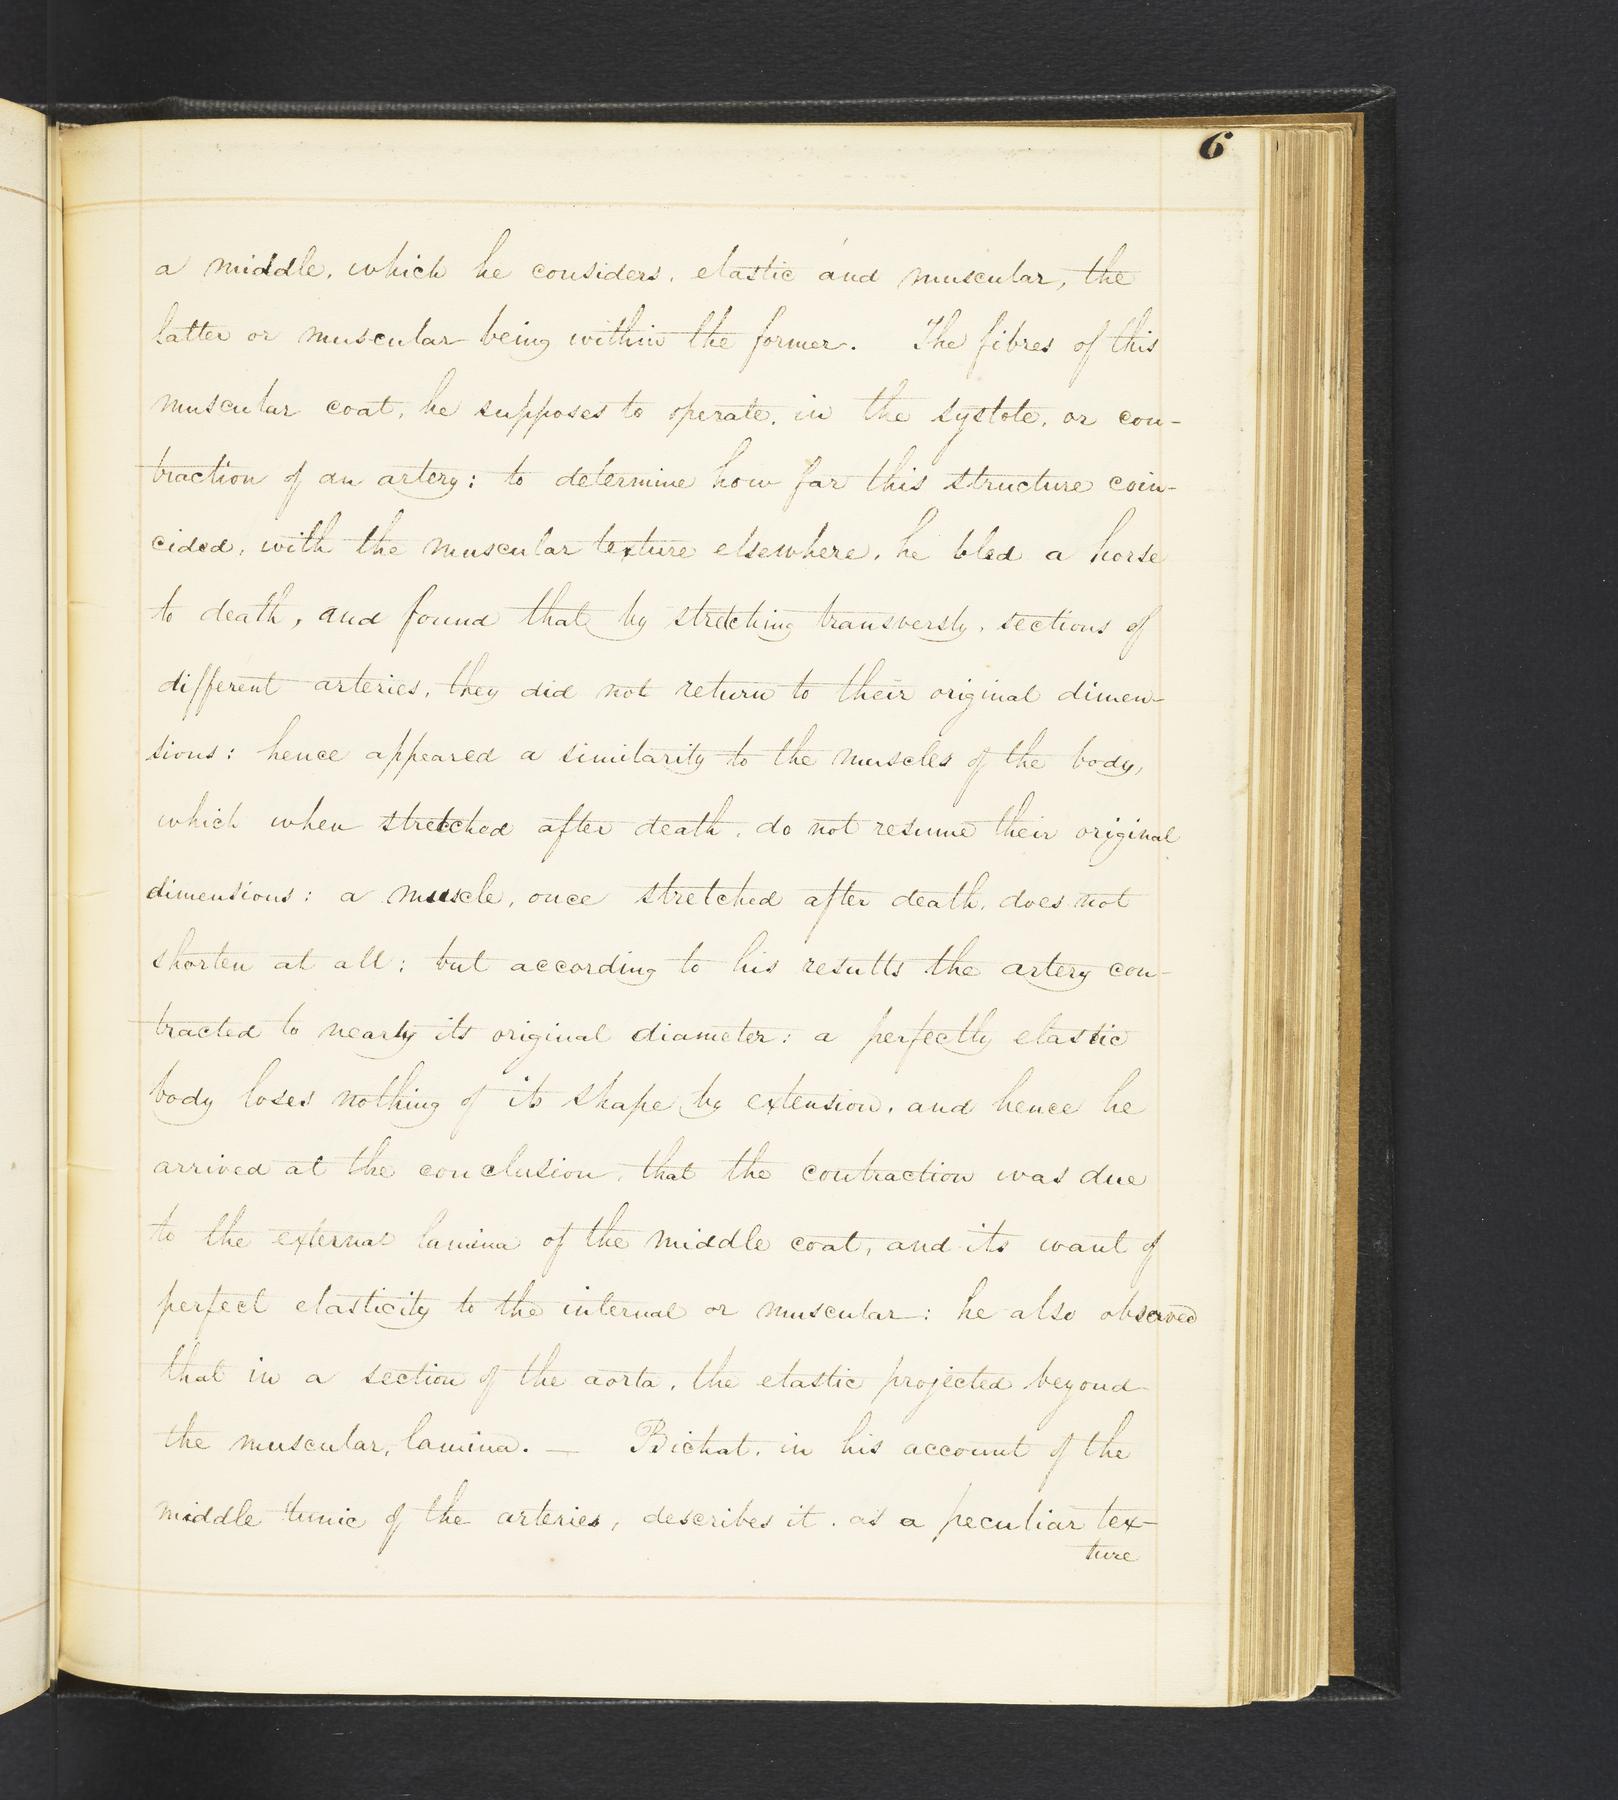 6
a middle, which he considers, elastic and muscular, the
latter or muscular being within the former. The fibres of this
muscular coat, he supposes to operate, in the systole, or con-
traction of an artery: to determine how far this structure coin-
cided, with the muscular texture elsewhere, he bled a horse
to death, and found that by stretching transversly, sections of
different arteries, they did not return to their original dimen-
sions: hence appeared a similarity to the muscles of the body,
which when stretched after death, do not resume their original
dimensions: a muscle, once stretched after death, does not
shorten at all; but according to his results the artery con-
tracted to nearly its original diameter: a perfectly elastic
body loses nothing of its shape by extension, and hence he
arrived at the conclusion, that the contraction was due
to the external lamina of the middle coat, and its want of
perfect elasticity to the internal or muscular: he also observed
that in a section of the aorta, the elastic projected beyond
the muscular, lamina. — Bichat, in his account of the
middle tunic of the arteries, describes it, as a peculiar tex-
ture